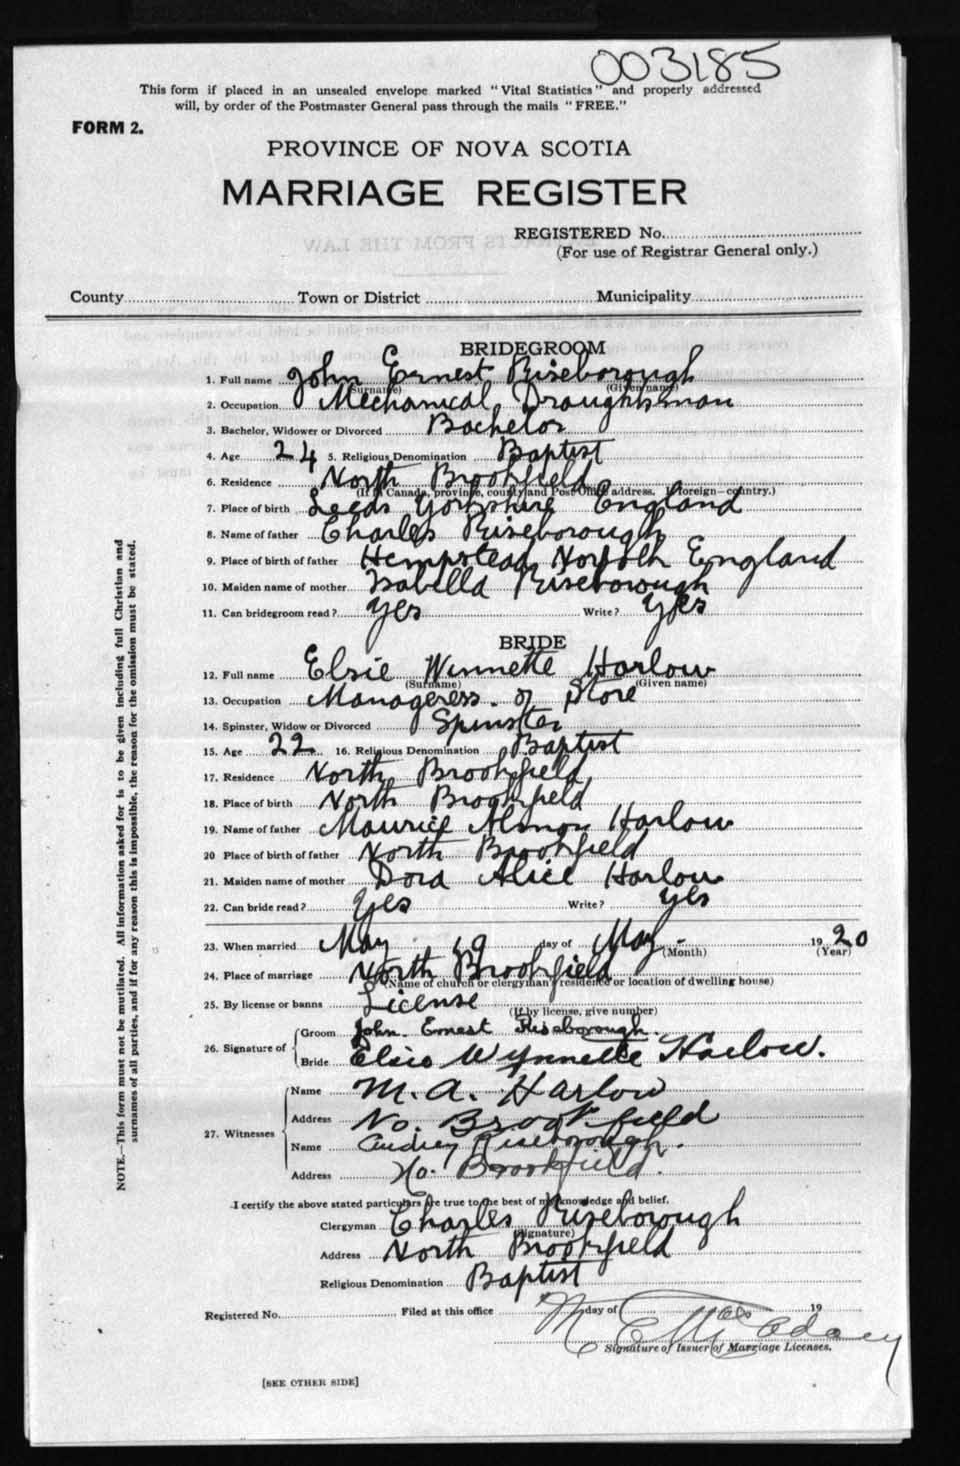 003185
This form if placed in an unsealed envelope marked "Vital Statistics" and properly addressed
will, by order of the Postmaster General pass through the mails "FREE."
FORM 2.
PROVINCE OF NOVA SCOTIA
MARRIAGE REGISTER
REGISTERED No.
(For use of Registrar General only.)
County Town or District Municipality
BRIDEGROOM
1. Full name John Ernest Riseborough
(Surname) (Given name)
2. Occupation Mechanical Draughtsman
3. Bachelor, Widower or Divorced Bachelor
4. Age 24 5. Religious Denomination Baptist
6. Residence North Brookfield
(If in Canada, province, county and Post Office address. If foreign—country.)
7. Place of birth Leeds Yorkshire England
8. Name of father Charles Riseborough
9. Place of birth of father Hempstead, Norfolk England
10. Maiden name of mother Isabella Riseborough
11. Can bridegroom read? Yes Write? Yes
BRIDE
12. Full name Elsie Winnette Harlow
(Surname) (Given name)
13. Occupation Manageress of Store
14. Spinster, Widow or Divorced Spinster
15. Age 22 16. Religious Denomination Baptist
17. Residence North Brookfield,
18. Place of birth North Brookfield
19. Name of father Maurice Harlow
20 Place of birth of father North Brookfield
21. Maiden name of mother Dora Alice Harlow
22. Can bride read? Yes Write? Yes
23. When married May 19 day of May 1920
(Month) (Year)
24. Place of marriage North Brookfield
(Name of church or clergyman's residence or location of dwelling house)
25. By license or banns License
(If by license, give number)
26. Signature of Groom John. Ernest Riseborough.
Bride Elsie Wynnette Harlow.
27. Witnesses Name M. A. Harlow
Address No. Brookfield
Name Audrey Riseborough.
Address No. Brookfield.
I certify the above stated particulars are true to the best of my knowledge and belief.
Clergyman Charles Riseborough
(Signature)
Address North Brookfield
Religious Denomination Baptist
Registered No. Filed at this office day of 19
Signature of Issuer of Marriage Licenses.
[SEE OTHER SIDE]
NOTE.—This form must not be mutilated. All information asked for is to be given including full Christian and
surnames of all parties, and if for any reason this is impossible, the reason for the omission must be stated.